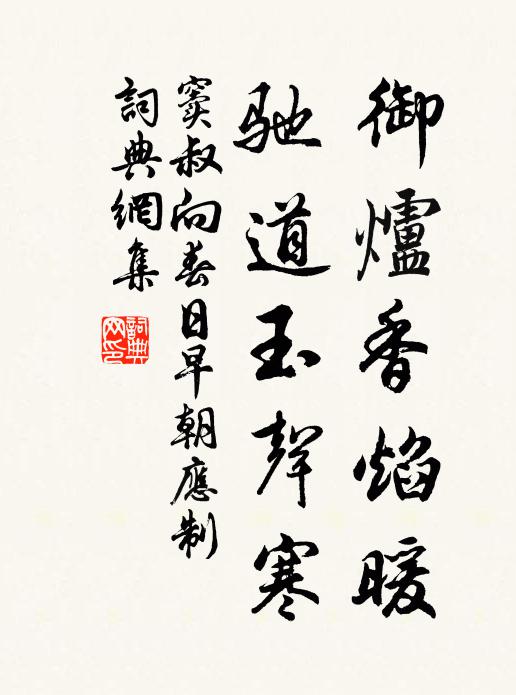 御爐香焰暖
馳道玉聲寒
竇叔向春日早朝應制
詞典網集
詞典
网印